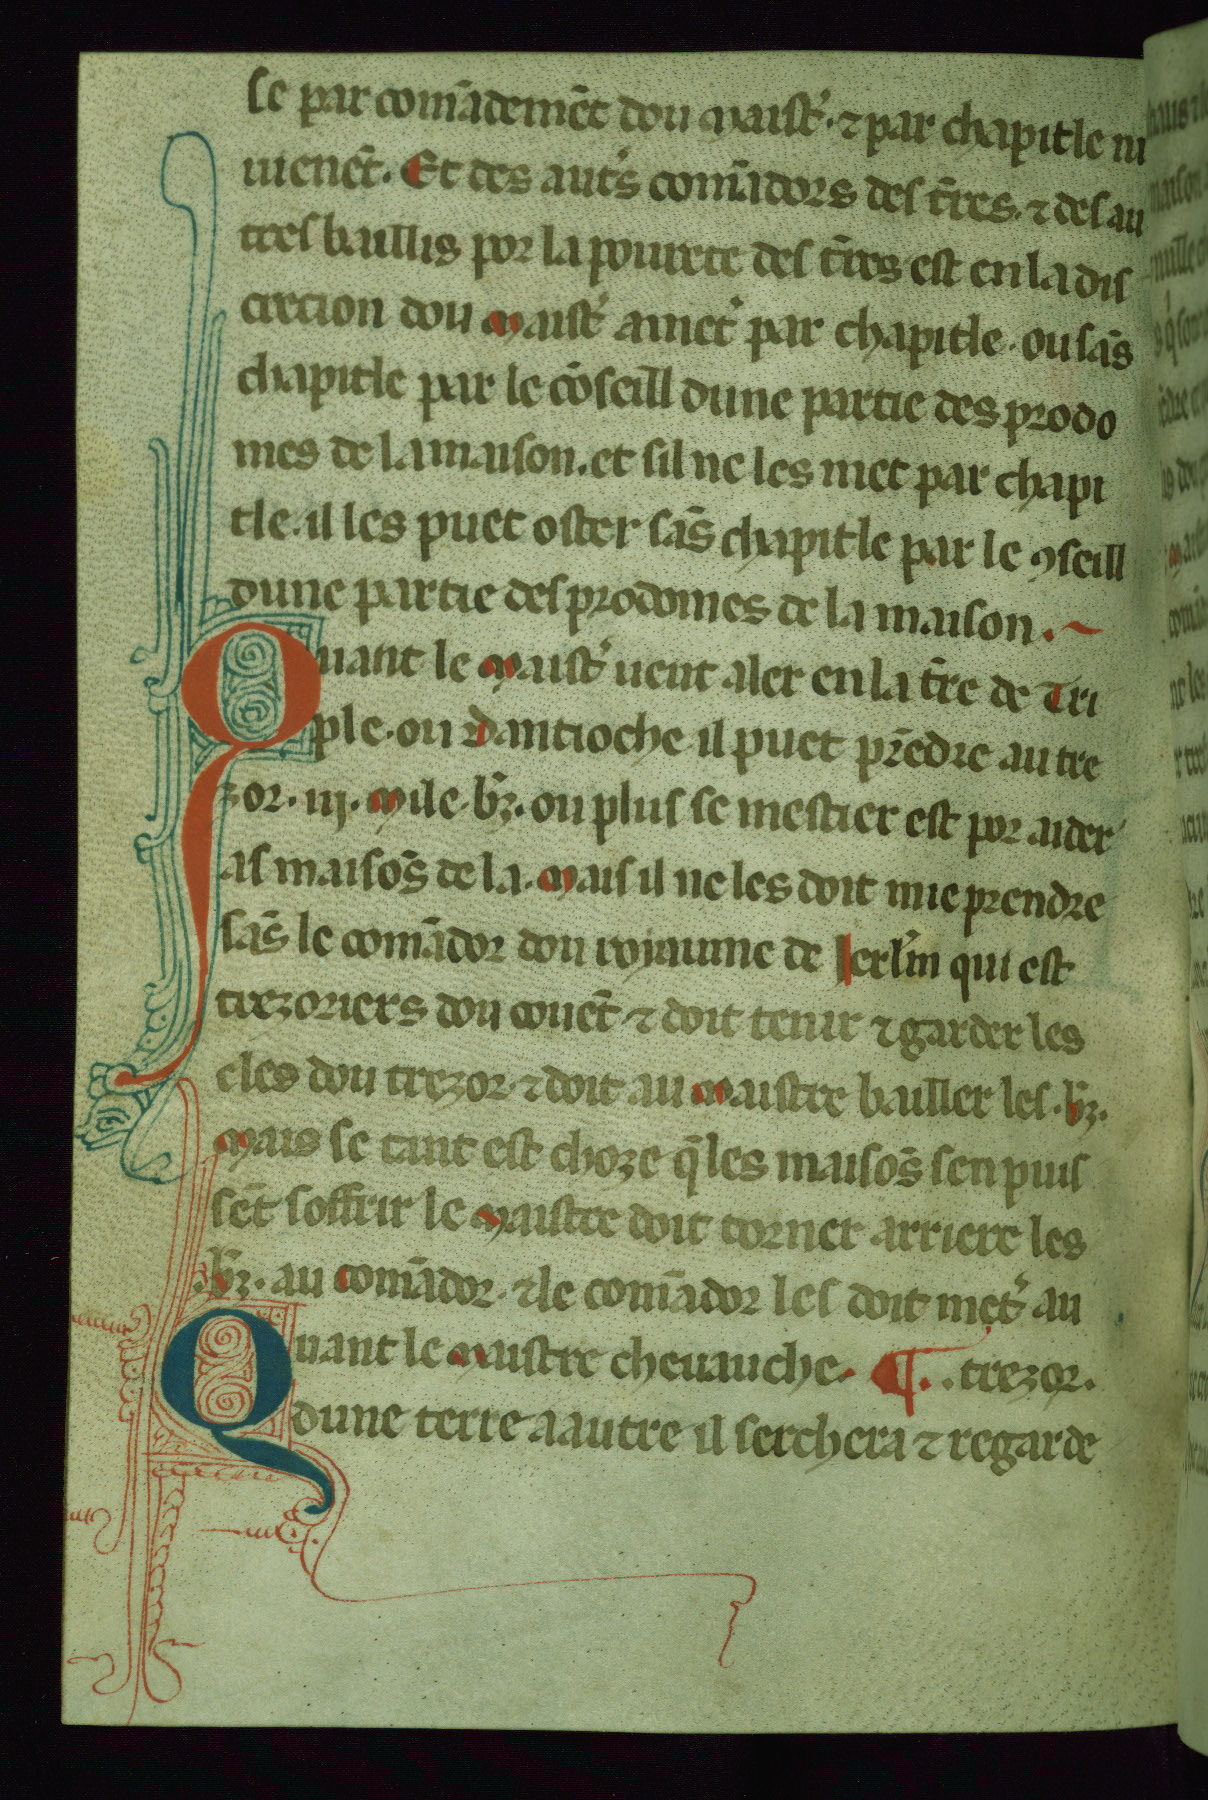 se par comādemēt dou maist᾽. ⁊ par chapitle ni
uienēt. Et des aut᾽s comādors des t̄res. ⁊ des au
tres baillis por la pourete des t̄res est en la dis
crecion dou maist᾽ a met᾽ par chapitle. ou sās
chapitle par le cōseill dune partie des prodo
mes de la maison. et sil ne les met par chapi
tle. il les puet oster sās chapitle par le ꝯseill
dune partie des prodomes de la maison.
Quant le maist᾽ ueut aler en la t̄re de Tri
ple. ou dantioche il puet prēdre au tre
zor. iij. mile. bz̄. ou plus se mestier est por aider
as maisos̄ de la. mais il ne les doit mie prendre
sās le comādor dou royaume de Ierlm̄ qui est
trezoriers dou couēt ⁊ doit tenir ⁊ garder les
cles dou trezor. ⁊ doit au maistre bailler les. bz̄.
mais se tant est choze q̄ les maisos̄ sen puis
sēt soffrir le maistre doit torner arriere les
. bz̄. au comādor. ⁊ le comādor les doit met᾽ au
Quant le maistre cheuauche. ¶. trezor.
dune terre a autre il serchera ⁊ regarde